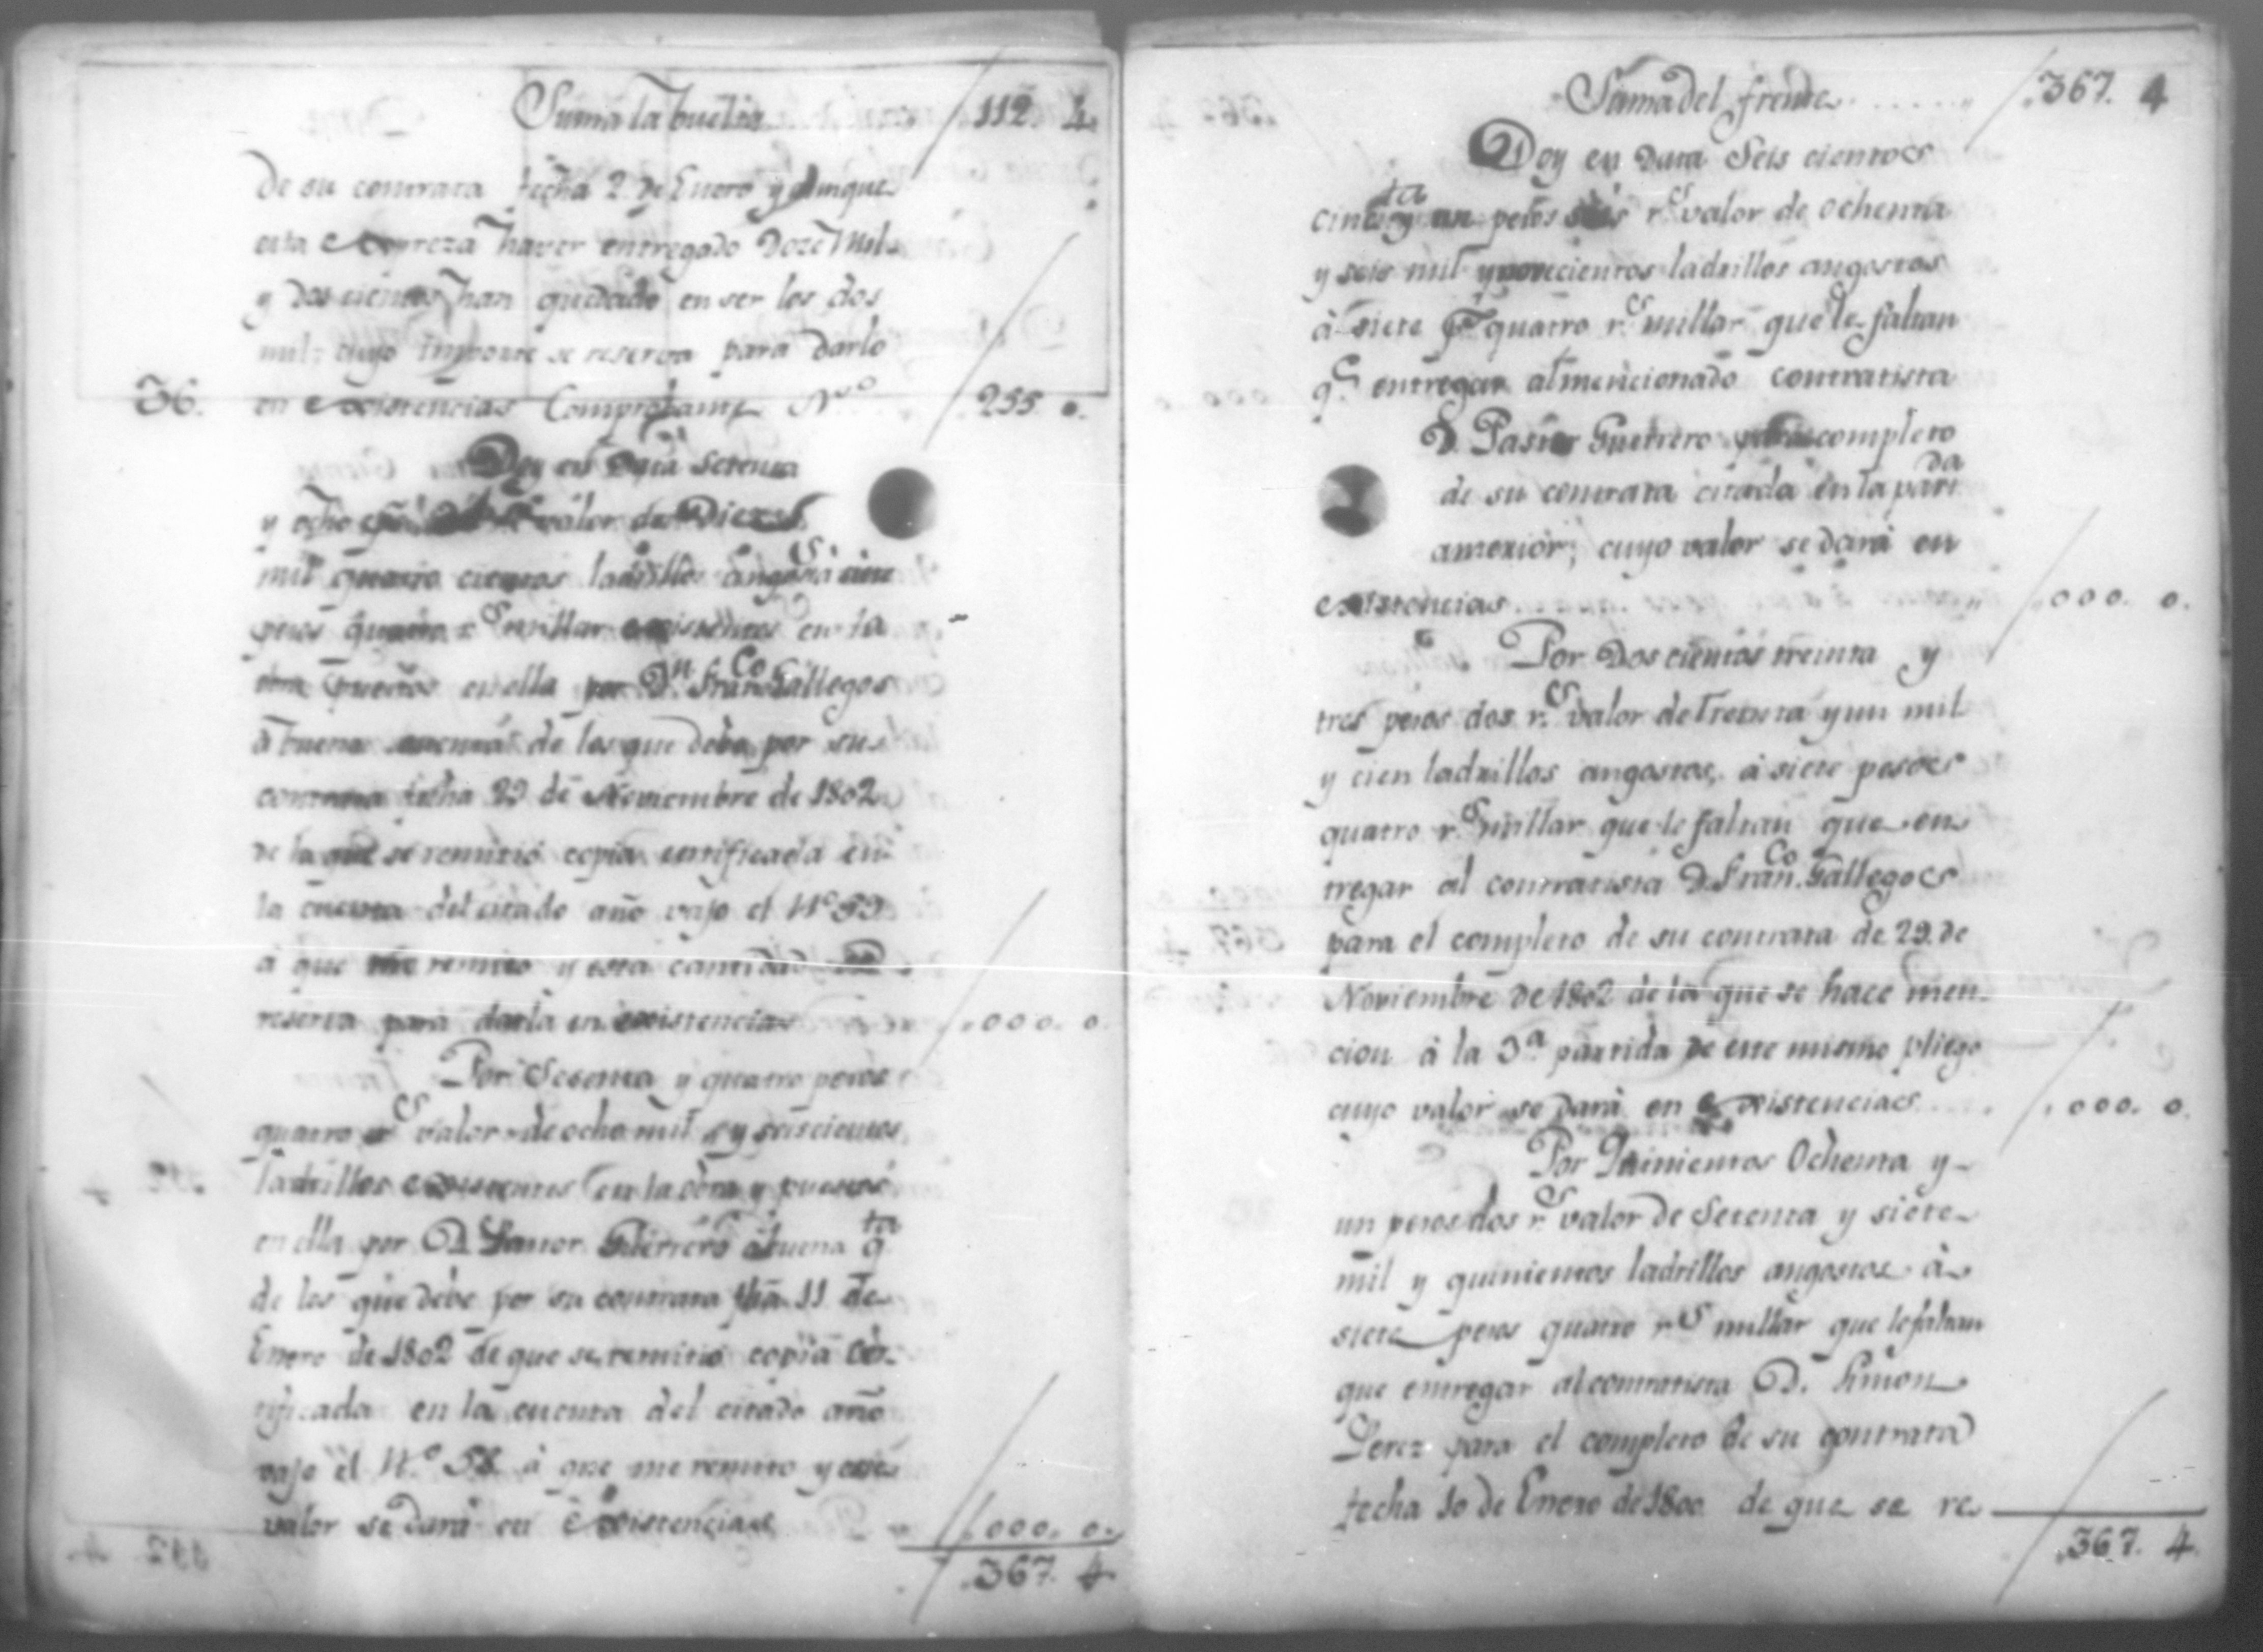 Suma la buelta 112. 4.
de su contrata fecha 2 de Enero y aunque
esta expreza haver entregado Doze Mil
y Doscientos han quedado en ser los dos
mil cuyo importe se reserva para darlo
36. en existencias Comprobante N.º 255. 0.
Doy en Data Setenta
y ocho valor de Diez
mil quatro cientos ladrillos angostos à siete
pesos quatro r.s millar existentes en la
obra puestos en ella por D.n Fran.co Gallegos
à buena cuenta de los que debe por su
contrata fecha 29 de Noviembre de 1802
de la que se remitió copia certificada en
la cuenta del citado año vajo el N.º 59
à que me remito y esta cantidad se
reserva para darla en existencias .000. 0.
Por Sesenta y quatro pesos
quatro r.s valor de ocho mil y seiscientos
ladrillos existentes en la obra y puestos
en ella por D. Pastor Guerrero à buena q.ta
de los que debe por su contrata fha 11 de
Enero de 1802 de que se remitió copia cer-
tificada en la cuenta del citado año
vajo el N.º 58 à que me remito y este
valor se dará en Existencias .000. 0.
.367. 4.
Suma del frente .367. 4
Doy en Data Seis cientos
cinq.ta y un pesos seis r.s valor de ochenta
y seis mil y novecientos ladrillos angostos
à siete p.s quatro r.s millar que le faltan
q.e entregar al mencionado contratista
D. Pastor Guerrero para completo
de su contrata citada en la part.da
anterior; cuyo valor se dará en
existencias .000. 0.
Por Dos cientos treinta y
tres pesos dos r.s valor de Treinta y un mil
y cien ladrillos angostos, à siete pesos
quatro r.s millar que le faltan que en
tregar al contratista D. Fran.co Gallegos
para el completo de su contrata de 29. de
Noviembre de 1802 de la que se hace men-
cion à la 3.a partida de este mismo pliego
cuyo valor se dará en existencias .000. 0.
Por Quinientos Ochenta y
un pesos dos r.s valor de Setenta y siete
mil y quinientos ladrillos angostos à
siete pesos quatro r.s millar que le faltan
que entregar al contratista D. Simon
Perez para el completo de su contrata
fecha 10 de Enero de 1800 de que se re
.367. 4.